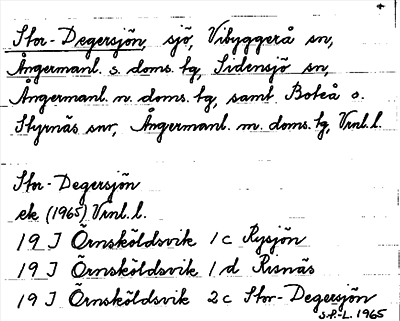 Stor-Degersjön, sjö, Vibyggerå sn,
Ångermanl. s. doms. tg, Sidensjö sn,
Ångermanl. n. doms. tg, samt Boteå o.
Styrnäs snr, Ångermanl. m. doms. tg, Vrnl. l.
Stor-Degersjön
ek (1965) Vrnl. l.
19 J Örnsköldsvik 1c Rysjön
19 J Örnsköldsvik 1d Risnäs
19 J Örnsköldsvik 2c Stor-Degersjön
S.P-L. 1965